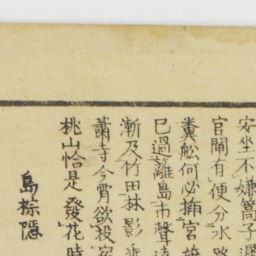 安坐不嫌篙子
官閘有便分水路
糞舩何必
已過離島市聲
漸及竹田林影
蕭寺今宵欲投宿
桃山恰是發花時
島棕隱